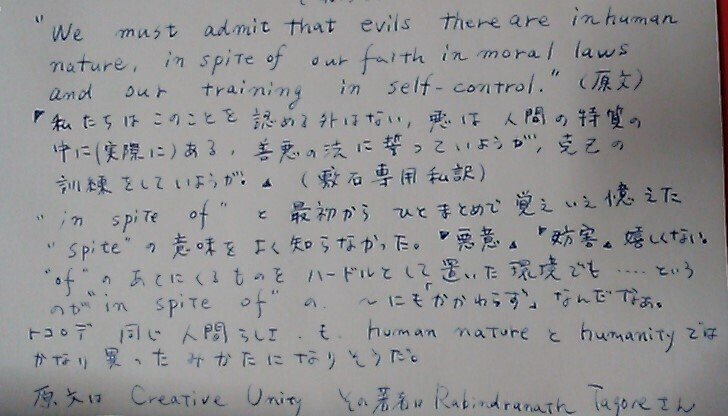 "We must admit that evils there are in human
nature, in spite of our faith in moral laws
and our training in self-control." (原文)
『私たちはこのことを認める外はない, 悪は人間の特質の
中に(実際に)ある, 善悪の法に誓っていようが, 克己の
訓練をしていようが。』 (敷石専用私訳)
"in spite of" と最初からひとまとめで覚えいえ憶えた
"spite" の意味をよく知らなかった。『悪意』『妨害』嬉しくない。
"of" のあとにくるものをハードルとして置いた環境でも……という
のが "in spite of" の ~にも「かかわらず」なんだなぁ。
トコロデ 同じ人間らしさ も human nature と humanity では
かなり異ったみかたになりそうだ。
原文は Creative Unity その著者は Rabindranath Tagore さん